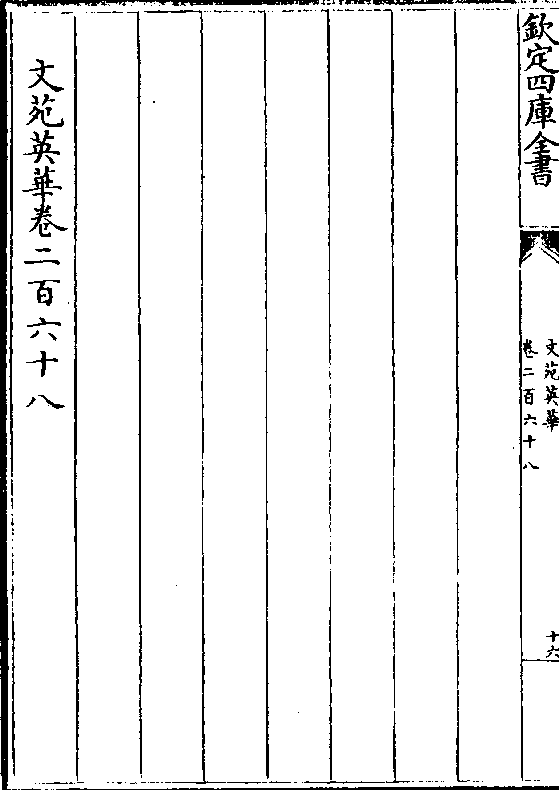 欽定四庫全書
文苑英華
卷二百六十八
十六
文苑英華卷二百六十八